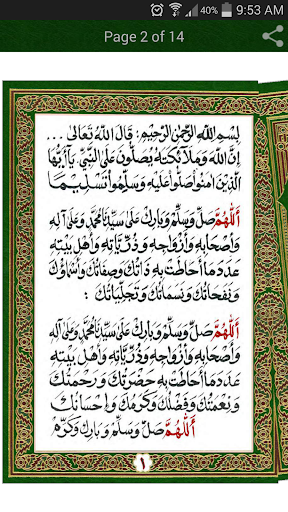 40% 9:53 AM
Page 2 of 14
بِسْمِ اللهِ الرَّحْمٰنِ الرَّحِيْمِ: قَالَ اللهُ تَعَالَى ...
إِنَّ اللهَ وَمَلَآئِكَتَهُ يُصَلُّونَ عَلَى النَّبِيِّ يَآأَيُّهَا
الَّذِيْنَ اٰمَنُوْا صَلُّوْا عَلَيْهِ وَسَلِّمُوْا تَسْلِيْمًا
اَللّٰهُمَّ صَلِّ وَسَلِّمْ وَبَارِكْ عَلَى سَيِّدِنَا مُحَمَّدٍ وَعَلَى آلِهِ
وَأَصْحَابِهِ وَأَزْوَاجِهِ وَذُرِّيَّاتِهِ وَأَهْلِ بَيْتِهِ
عَدَدَ مَا أَحَاطَتْ بِهِ ذَاتُكَ وَصِفَاتُكَ وَأَسْمَاؤُكَ
وَنَفَحَاتُكَ وَنَسَمَاتُكَ وَتَجَلِّيَاتُكَ :
اَللّٰهُمَّ صَلِّ وَسَلِّمْ وَبَارِكْ عَلَى سَيِّدِنَا مُحَمَّدٍ وَعَلَى آلِهِ
وَأَصْحَابِهِ وَأَزْوَاجِهِ وَذُرِّيَّاتِهِ وَأَهْلِ بَيْتِهِ
عَدَدَ مَا أَحَاطَتْ بِهِ حَضْرَتُكَ وَرَحْمَتُكَ
وَنِعْمَتُكَ وَفَضْلُكَ وَكَرَمُكَ وَإِحْسَانُكَ
اَللّٰهُمَّ صَلِّ وَسَلِّمْ وَبَارِكْ وَكَرِّمْ
١